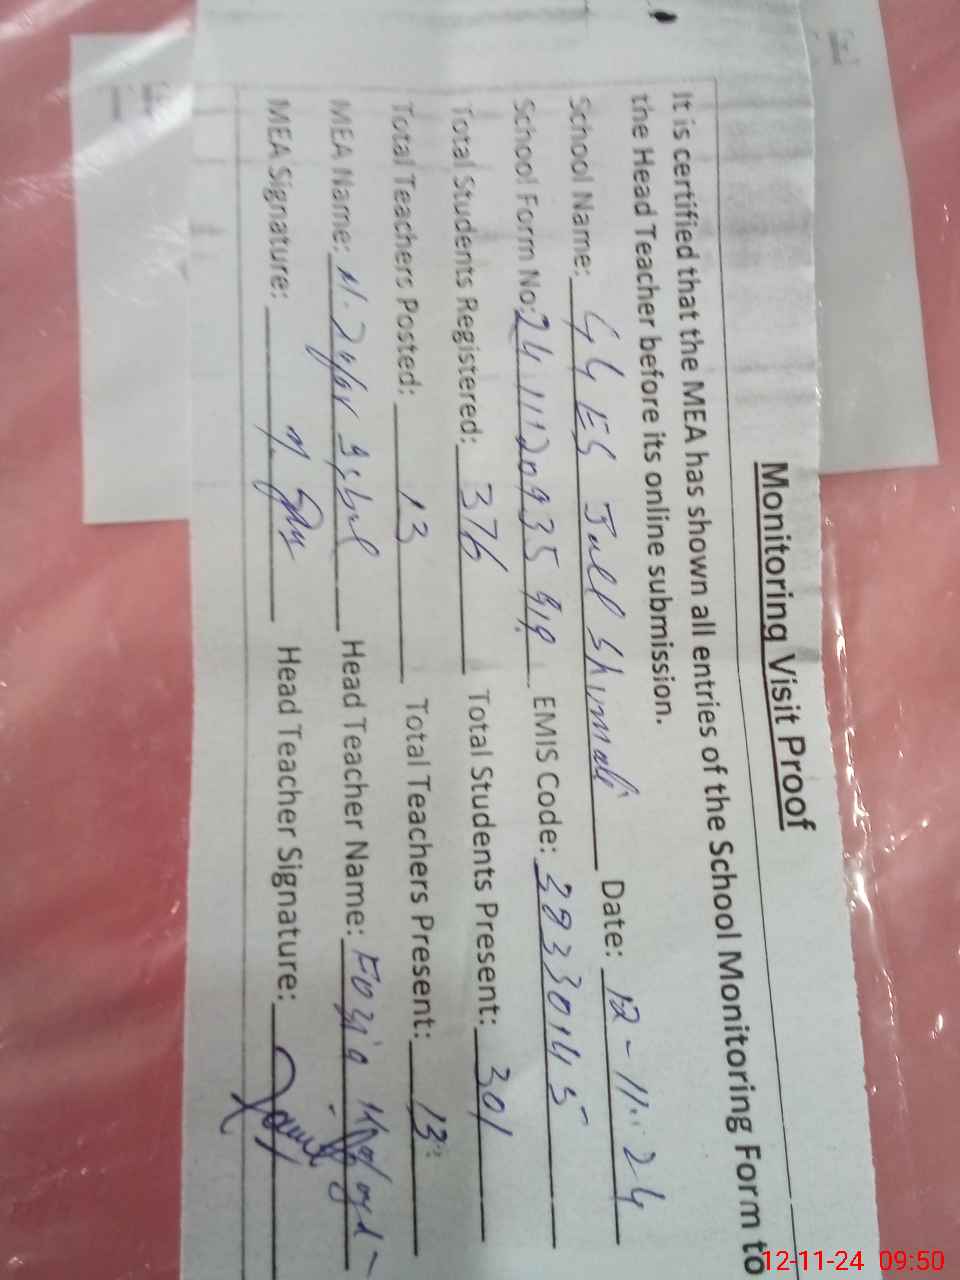 Monitoring Visit Proof
It is certified that the MEA has shown all entries of the School Monitoring Form to
the Head Teacher before its online submission.
School Name: GGES Jall Shumali Date: 12-11-24
School Form No: EMIS Code: 38330145
Total Students Registered: 376 Total Students Present: 301
Total Teachers Posted: 13 Total Teachers Present: 13
MEA Name: M. Head Teacher Name: Fozia
MEA Signature: Head Teacher Signature:
12-11-24 09:50